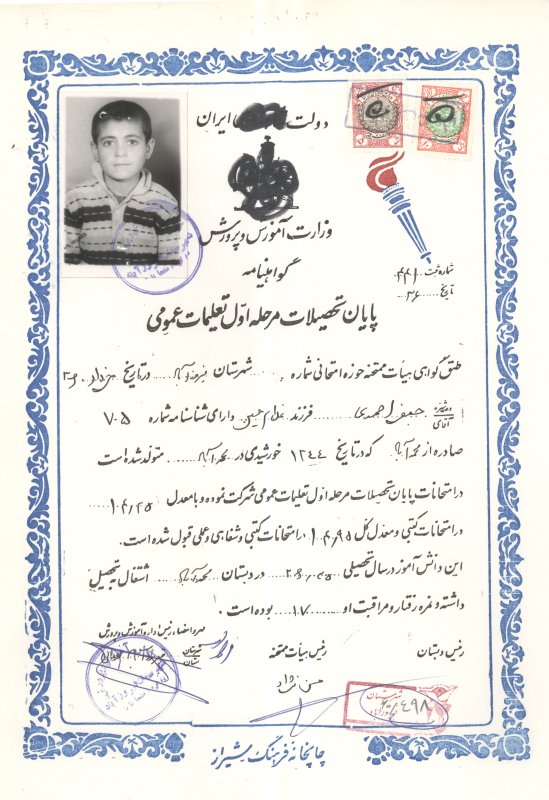 دولت ایران
وزارت آموزش و پرورش
گواهینامه
شماره ثبت ۴۴۱
تاریخ ۳۶
پایان تحصیلات مرحله اول تعلیمات عمومی
طبق گواهی هیأت ممتحنه حوزه امتحانی شماره شهرستان فیروزآباد در تاریخ خرداد
دوشیزه آقای جعفر احمدی فرزند غلام حسین دارای شناسنامه شماره ۷۰۵
صادره از محمدآباد که در تاریخ ۱۳۴۴ خورشیدی در محمدآباد متولد شده است
در امتحانات پایان تحصیلات مرحله اول تعلیمات عمومی شرکت نموده و با معدل
در امتحانات کتبی و معدل کل در امتحانات کتبی و شفاهی و عملی قبول شده است.
این دانش آموز در سال تحصیلی در دبستان محمدآباد اشتغال به تحصیل
داشته و نمره رفتار و مراقبت او ۱۷ بوده است.
مهر و امضاء رئیس اداره آموزش و پرورش
شهرستان
رئیس هیأت ممتحنه
رئیس دبستان
چاپخانه فرهنگ شیراز